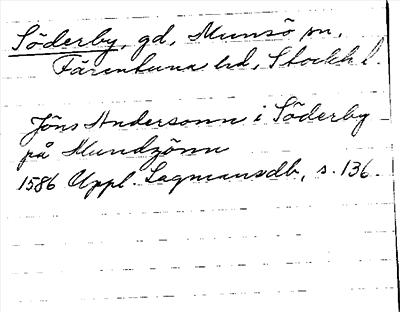 Söderby, gd, Munsö sn,
Färentuna hd, Stockh. l.
Jöns Andersonn i Söderby
på Mundzönn
1586 Uppl. Lagmansdb, s. 136.